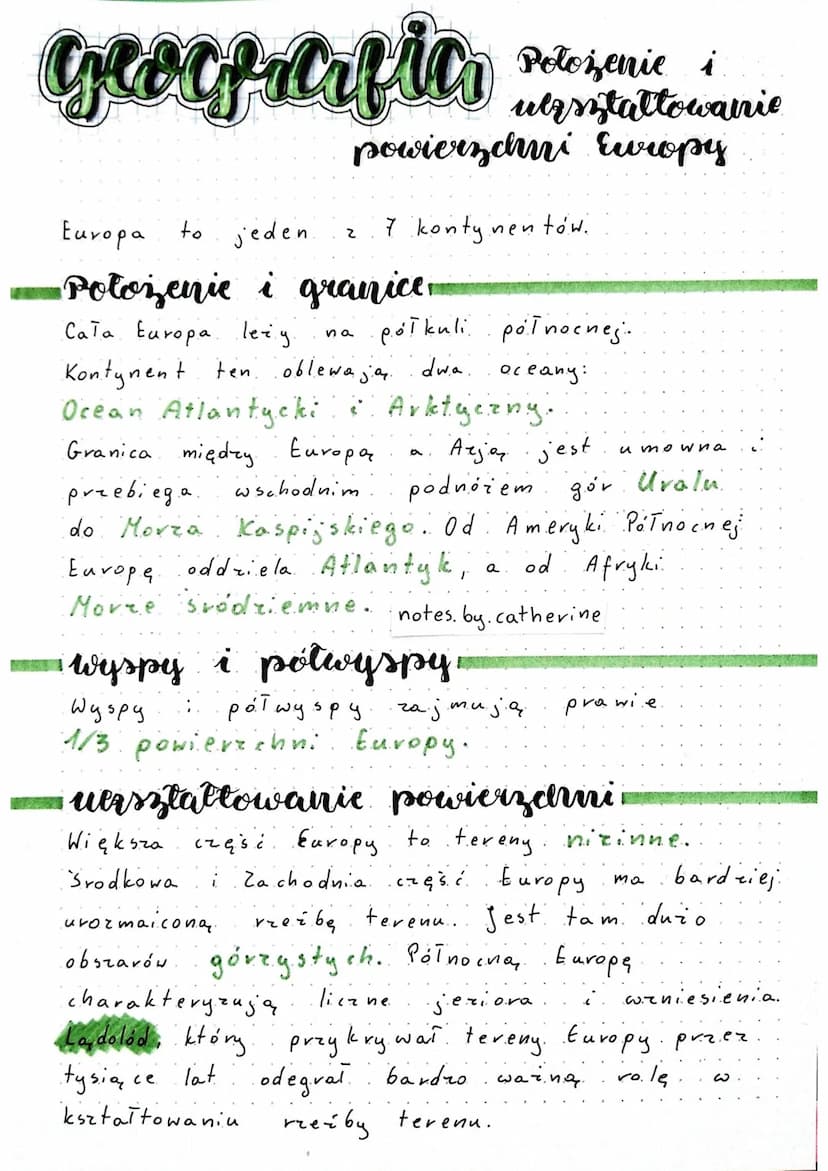 Geografia
Położenie i
ukształtowanie
powierzchni Europy
Europa to jeden z 7 kontynentów.
Położenie i granice
Cała Europa leży na półkuli północnej.
Kontynent ten oblewają dwa oceany:
Ocean Atlantycki i Arktyczny.
Granica między Europą a Azją jest umowna i
przebiega wschodnim podnóżem gór Uralu
do Morza Kaspijskiego. Od Ameryki Północnej
Europę oddziela Atlantyk, a od Afryki
Morze śródziemne. notes.by.catherine
wyspy i półwyspy
Wyspy i półwyspy zajmują prawie
1/3 powierzchni Europy.
ukształtowanie powierzchni
Większa część Europy to tereny nizinne.
Środkowa i Zachodnia część Europy ma bardziej
urozmaiconą rzeźbę terenu. Jest tam dużo
obszarów górzystych. Północną Europę
charakteryzują liczne jeziora i wzniesienia.
Lądolód, który przykrywał tereny Europy przez
tysiące lat odegrał bardzo ważną rolę w
kształtowaniu rzeźby terenu.